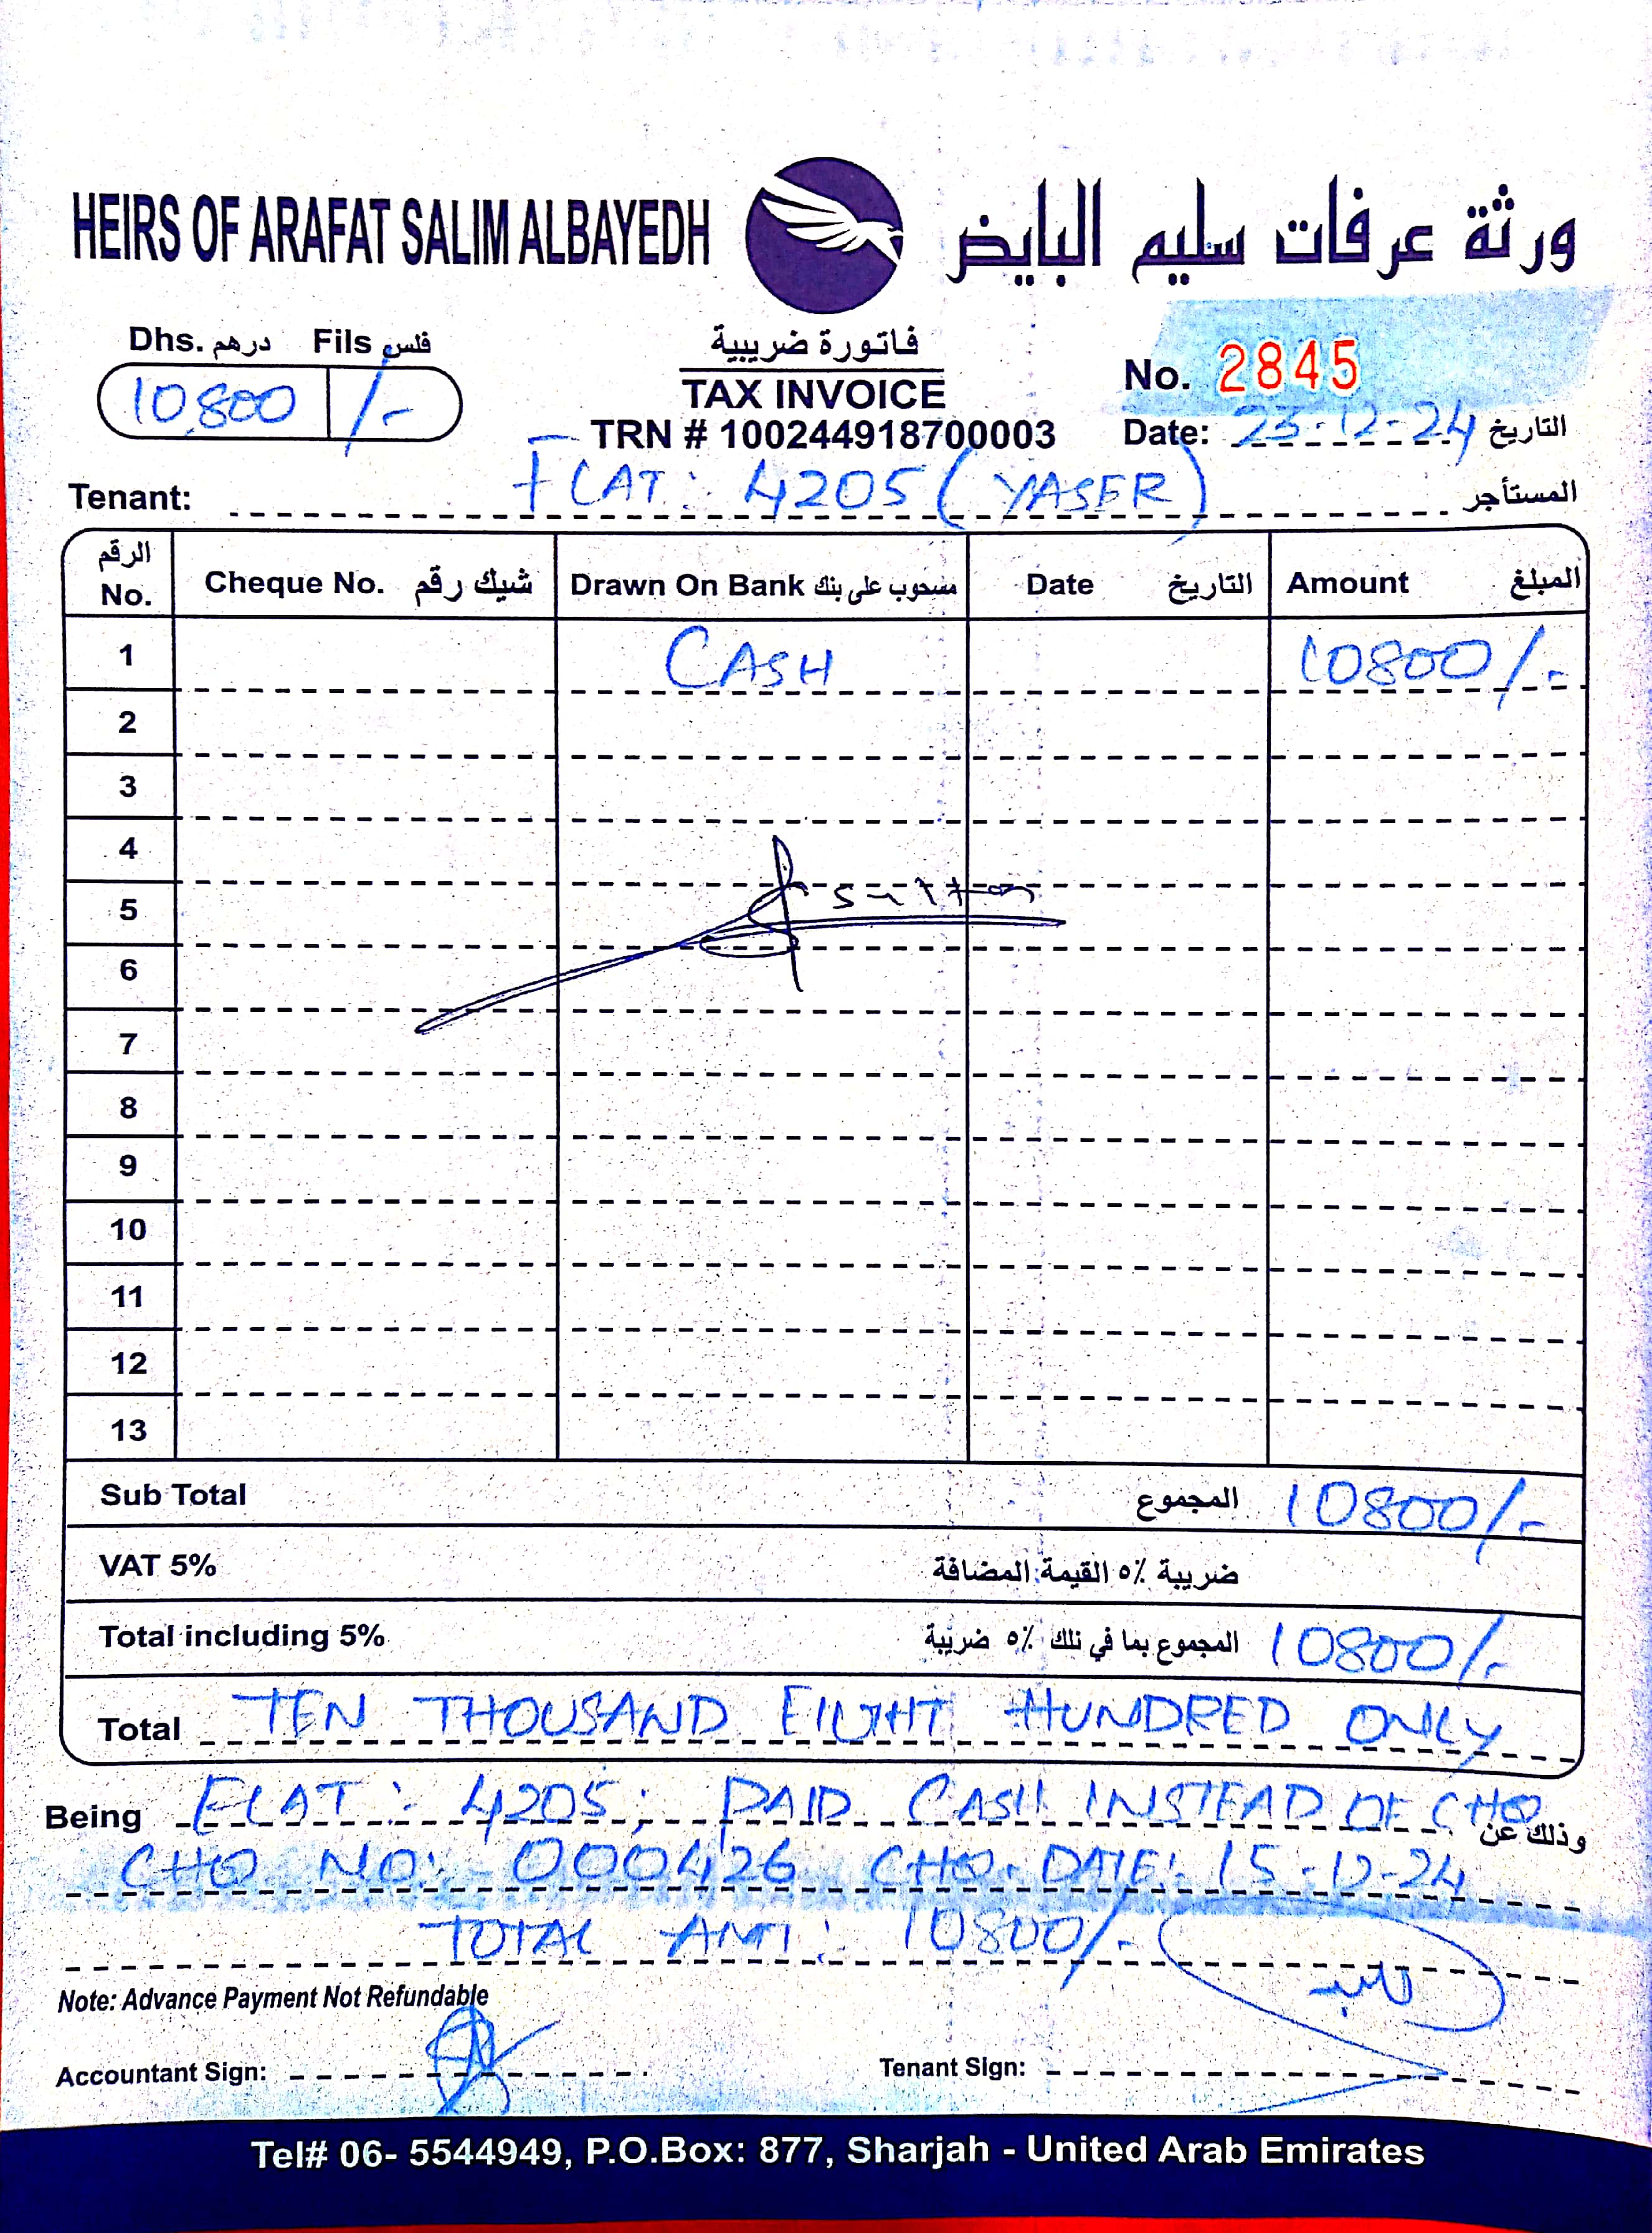 HEIRS OF ARAFAT SALIM ALBAYEDH ورثة عرفات سليم البايض
Dhs. درهم Fils فلس
10,800 /-
فاتورة ضريبية
TAX INVOICE
TRN # 100244918700003
No. 2845
Date: 23-12-24 التاريخ
Tenant: FLAT: 4205 (YASER) المستأجر
الرقم No. Cheque No. شيك رقم Drawn On Bank مسحوب على بنك Date التاريخ Amount المبلغ
1 CASH 10800/-
2
3
4
5 sultan
6
7
8
9
10
11
12
13
Sub Total المجموع 10800/-
VAT 5% ضريبة ٥٪ القيمة المضافة
Total including 5% المجموع بما في تلك ٥٪ ضريبة 10800/-
Total TEN THOUSAND EIGHT HUNDRED ONLY
Being FLAT: 4205; PAID CASH INSTEAD OF CHQ وذلك عن
CHQ NO: 000426 CHQ. DATE: 15-12-24
TOTAL AMT: 10800/-
Note: Advance Payment Not Refundable
Accountant Sign: Tenant Sign:
Tel# 06- 5544949, P.O.Box: 877, Sharjah - United Arab Emirates